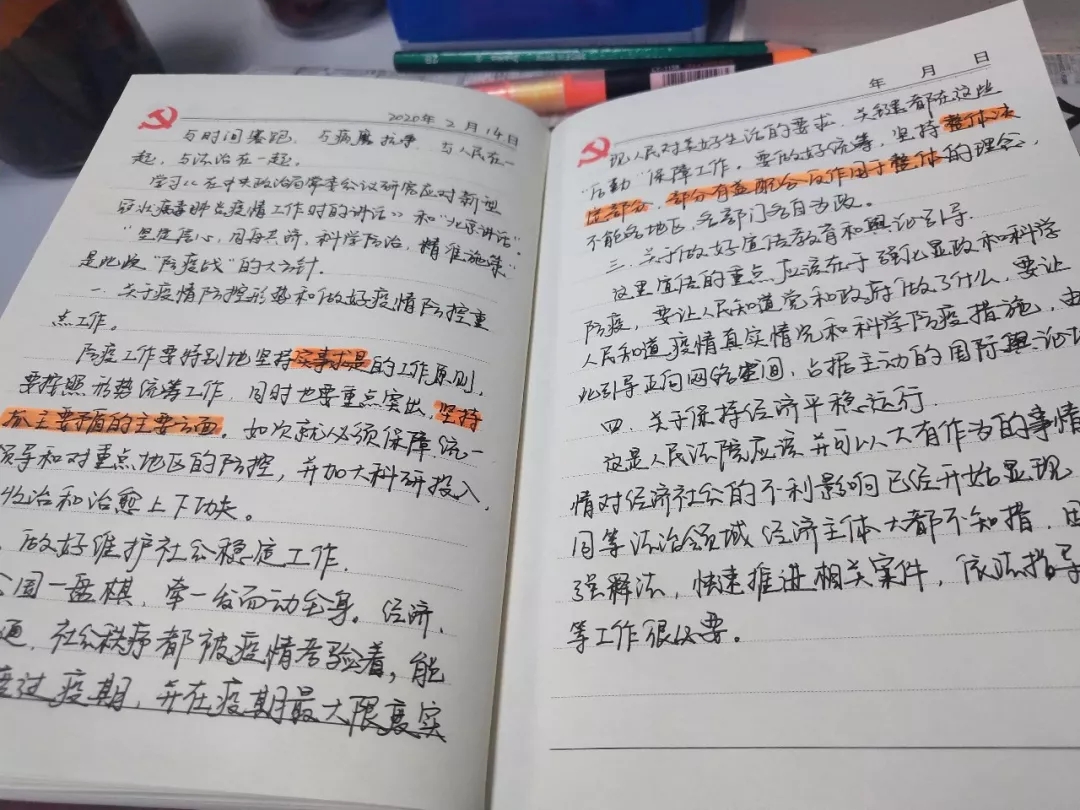 2020年 2月 14日
与时间赛跑、与病魔抗争、与人民在一
起，与法治在一起。
学习《在中央政治局常委会议研究应对新型
冠状病毒肺炎疫情工作时的讲话》和"北京讲话"
"坚定信心，同舟共济，科学防治，精准施策"
是此次"防疫战"的大方针。
一、关于疫情防控形势和做好疫情防控重
点工作。
防疫工作要特别地坚持实事求是的工作原则，
要按照形势统筹工作，同时也要重点突出，坚持
抓主要矛盾的主要方面。如次就必须保障统一
领导和对重点地区的防控，并加大科研投入，
收治和治愈上下功夫。
、做好维护社会稳定工作.
全国一盘棋，牵一发而动全身。经济、
通、社会秩序都被疫情考验着，能
度过疫期，并在疫期最大限度实
年 月 日
现人民对美好生活的要求，关键都在这些
"后勤"保障工作。要做好统筹，坚持整体决
定部分，部分有益配合反作用于整体的理念，
不能各地区、各部门各自为政。
三、关于做好宣传教育和舆论引导.
这里宣传的重点，应该在于强化显政和科学
防疫，要让人民知道党和政府做了什么，要让
人民知道疫情真实情况和科学防疫措施，由
此引导正向网络空间，占据主动的国际舆论
四、关于保持经济平稳运行.
这是人民法院应该并可以大有作为的事情
情对经济社会的不利影响已经开始显现
同等法治领域经济主体大都不知措，
强释法，快速推进相关案件，依法指导
等工作很必要。